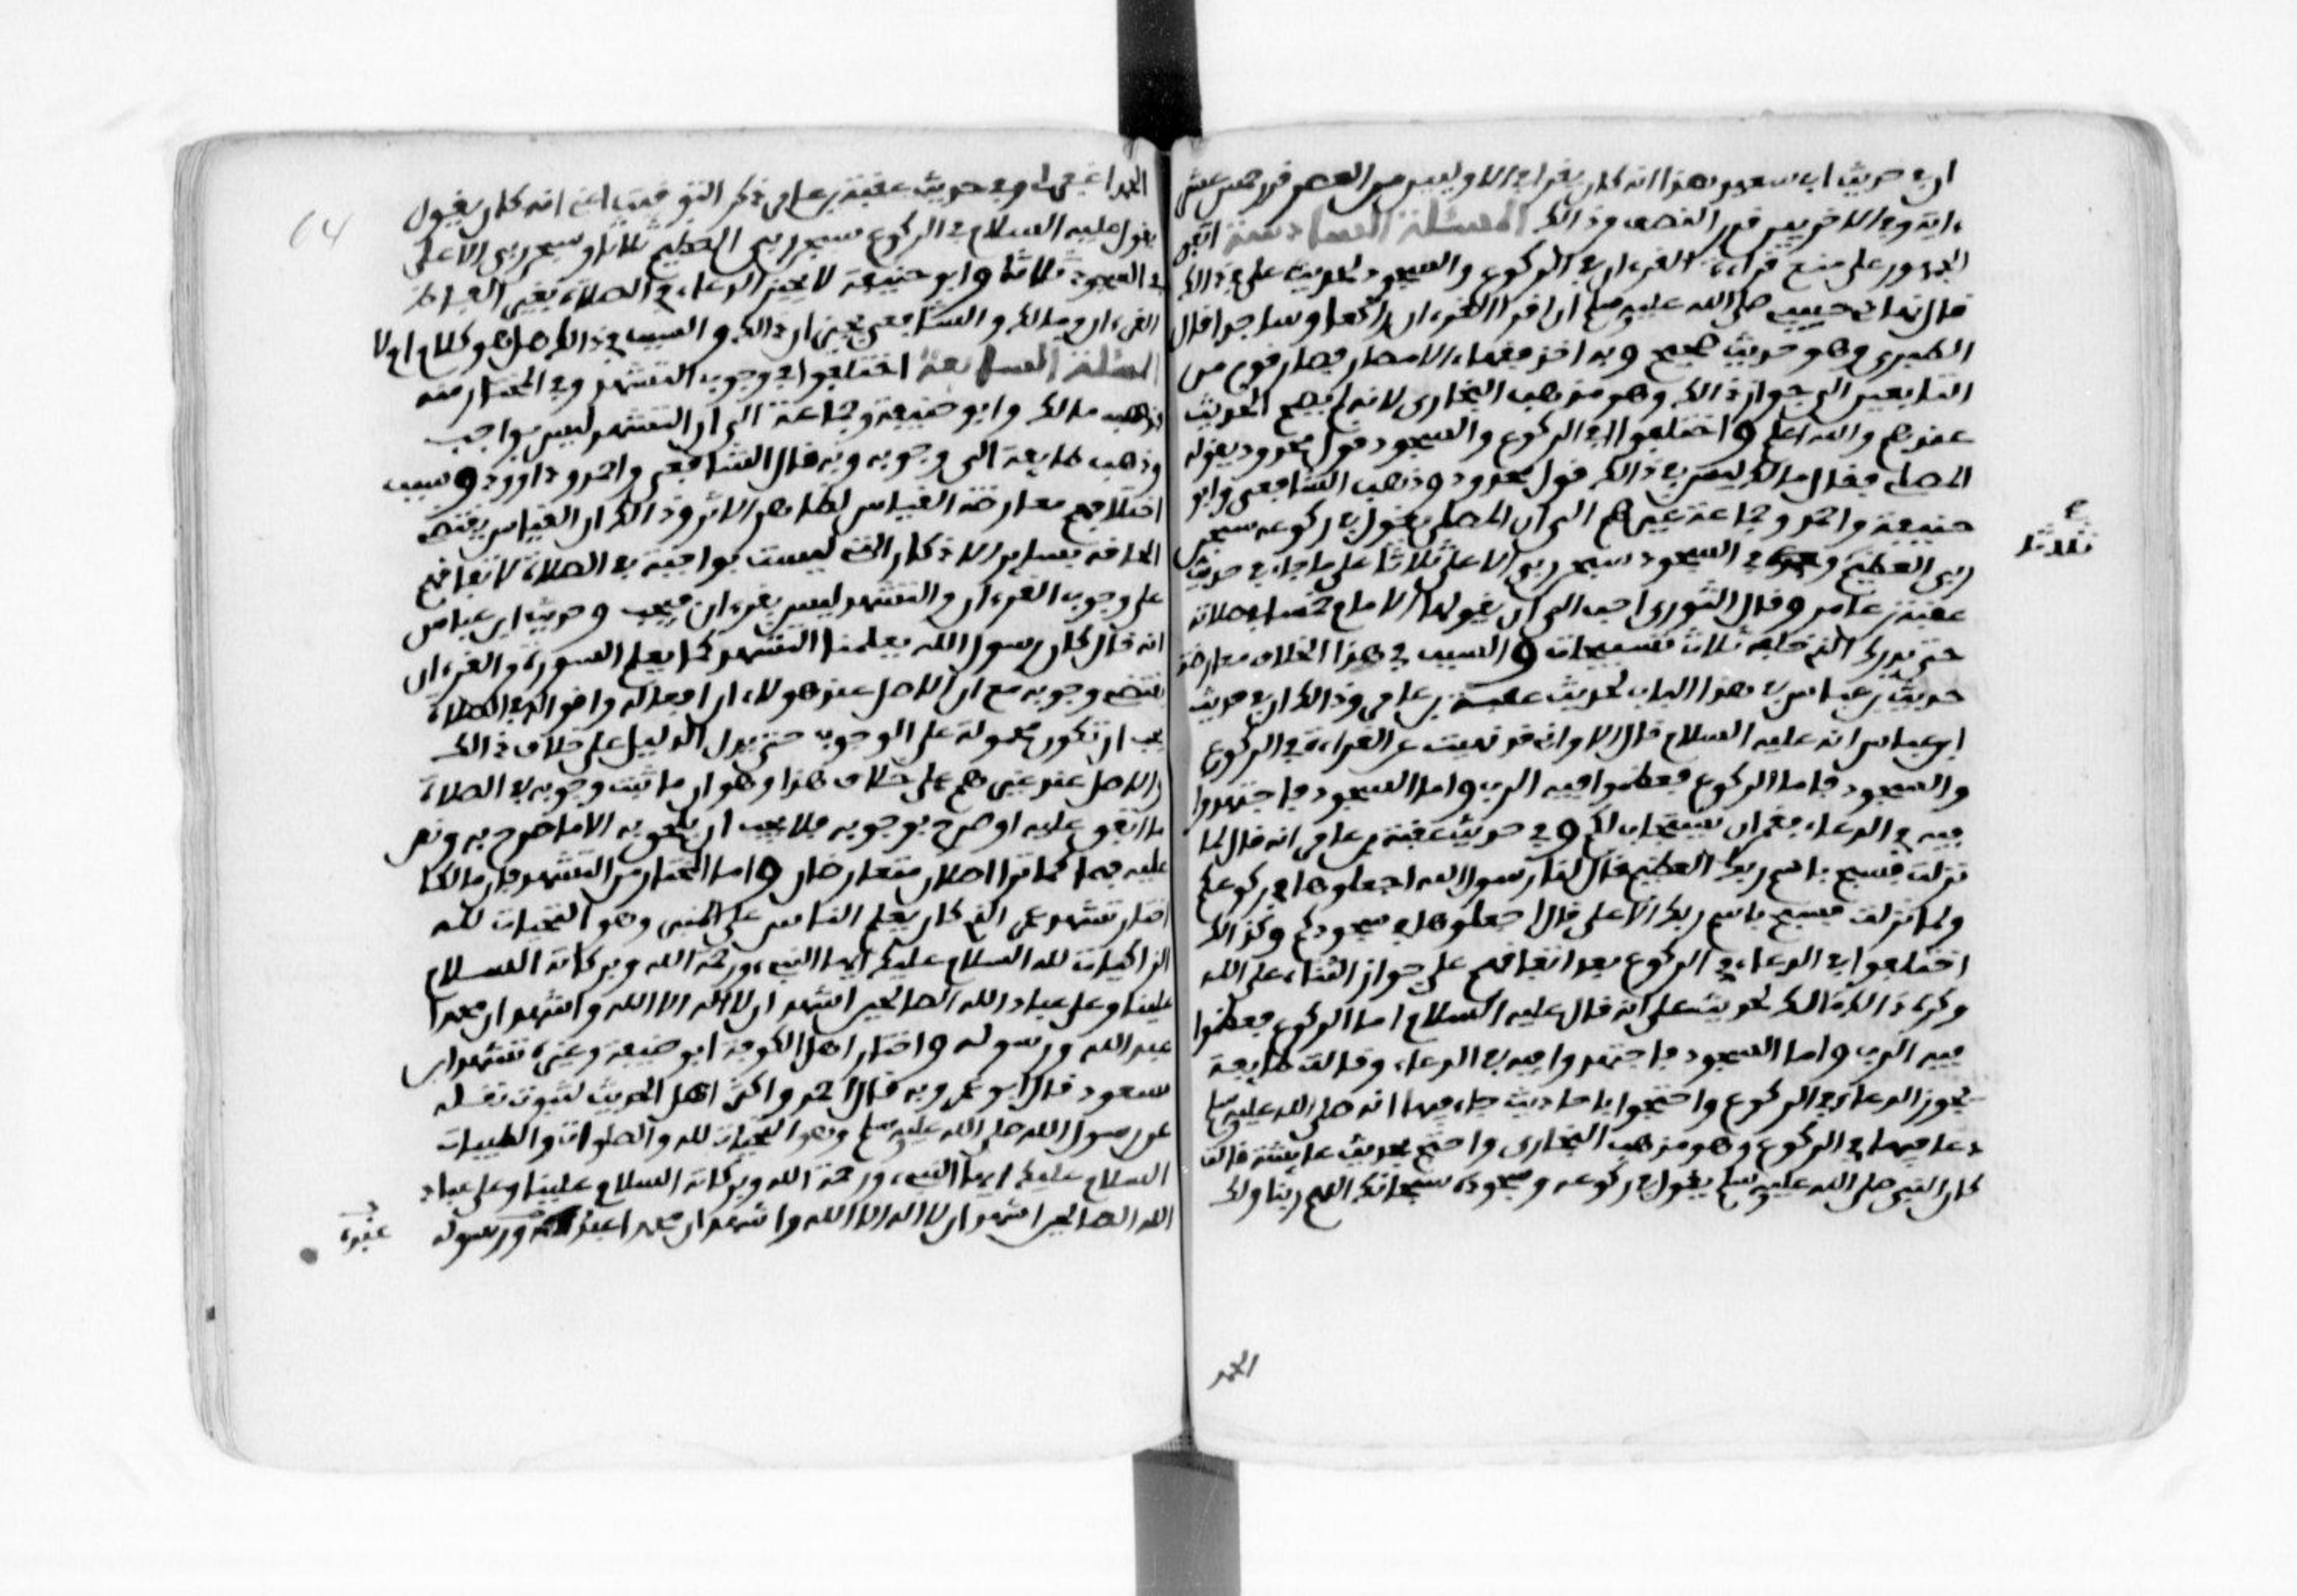 ان في حديث ابي سعيد هذا انه كان يقرا في الاوليين من العصر قدر خمس عشرة
ءاية وفي الاخريين قدر النصف وذالك المسئلة السادسة اتفق
الجمهور على منع قراءة القرءان في الركوع والسجود لحديث علي في ذالك
قال نهاني حبيبي صلى الله عليه وسلم ان اقرا القرءان راكعا وساجدا قال
الطبري وهو حديث صحيح وبه اخذ فقهاء الامصار وصار قوم من
التابعين الى جواز ذالك وهو مذهب البخاري لانه لم يصح الحديث
عندهم والله اعلم واختلفوا في الركوع والسجود قول محدود يقوله
المصلي فقال مالك ليس في ذالك قول محدود وذهب الشافعي وابو
حنيفة واحمد وجماعة غيرهم الى ان المصلي يقول في ركوعه سبحن
ربي العظيم وفي السجود سبحن ربي الاعلى ثلاثا على ما جاء في حديث
ثلاثا
عقبة بن عامر وقال الثوري احب الي ان يقولها الامام خمسا في صلاته
حتى يدرك الذي خلفه ثلاث تسبيحات والسبب في هذا الخلاف معارضة
حديث بن عباس في هذا الباب لحديث عقبة بن عامر وذالك ان في حديث
ابن عباس انه عليه السلام قال الا واني قد نهيت عن القراءة في الركوع
والسجود فاما الركوع فعظموا فيه الرب واما السجود فاجتهدوا
فيه في الدعاء فقمن ان يستجاب لكم وفي حديث عقبة بن عامر انه قال لما
نزلت فسبح باسم ربك العظيم قال لنا رسول الله اجعلوها في ركوعكم
ولما نزلت سبح باسم ربك الاعلى قال اجعلوها في سجودكم وكذالك
اختلفوا في الدعاء في الركوع بعد اتفاقهم على جواز الثناء على الله
وكره ذالك مالك لحديث علي انه قال عليه السلام اما الركوع فعظموا
فيه الرب واما السجود فاجتهدوا فيه في الدعاء وقالت طايفة
يجوز الدعاء في الركوع واحتجوا باحاديث جاء فيها انه صلى الله عليه وسلم
دعا فيها في الركوع وهو مذهب البخاري واحتج بحديث عايشة قالت
كان النبي صلى الله عليه وسلم يقول في ركوعه وسجوده سبحانك اللهم ربنا ولك
الحمد
64
الحمد اغفر لي وفي حديث عقبة بن عامر ذكر التوقيت اعني انه كان يقول
يقول عليه السلام في الركوع سبحن ربي العظيم ثلاثا وسبحن ربي الاعلى
في السجود ثلاثا وابو حنيفة لا يجيز الدعاء في الصلاة بغير الفاظ
القرءان ومالك والشافعي يجيزان ذالك والسبب في ذالك هل هو كلام ام لا
المسئلة السابعة اختلفوا في وجوب التشهد وفي المختار منه
فذهب مالك وابو حنيفة وجماعة الى ان التشهد ليس بواجب
وذهب طايفة الى وجوبه وبه قال الشافعي واحمد وداوود وسبب
اختلافهم معارضة القياس لظاهر الاثر وذالك ان القياس يقتضي
الحاقه بساير الاذكار التي ليست بواجبة في الصلاة لاتفاقهم
على وجوب القرءان والتشهد ليس بقرءان فيجب وحديث ابن عباس
انه قال كان رسول الله يعلمنا التشهد كما يعلم السورة والقرءان
يقتضي وجوبه مع ان الاصل عند هولاء ان افعاله واقواله في الصلاة
يجب ان تكون محمولة على الوجوب حتى يدل الدليل على خلاف ذالك
والاصل عند غيرهم على خلاف هذا وهو ان ما ثبت وجوبه في الصلاة
ما اتفق عليه او صرح بوجوبه فلا يجب ان يلحق به الا ما صرح به ونص
عليه فهما كما ترا اصلان متعارضان واما المختار من التشهد فان مالكا
اختار تشهد عمر الذي كان يعلم الناس على المنبر وهو التحيات لله
الزاكيات لله السلام عليك ايها النبي ورحمة الله وبركاته السلام
علينا وعلى عباد الله الصالحين اشهد ان لا اله الا الله واشهد ان محمدا
عبد الله ورسوله واختار اهل الكوفة ابو حنيفة وغيره تشهد ابن
مسعود قال ابو عمر وبه قال احمد واكثر اهل الحديث لثبوت نقله
عن رسول الله صلى الله عليه وسلم وهو التحيات لله والصلوات والطيبات
السلام عليك ايها النبي ورحمة الله وبركاته السلام علينا وعلى عباد
الله الصالحين اشهد ان لا اله الا الله واشهد ان محمدا عبد الله ورسوله
عبده